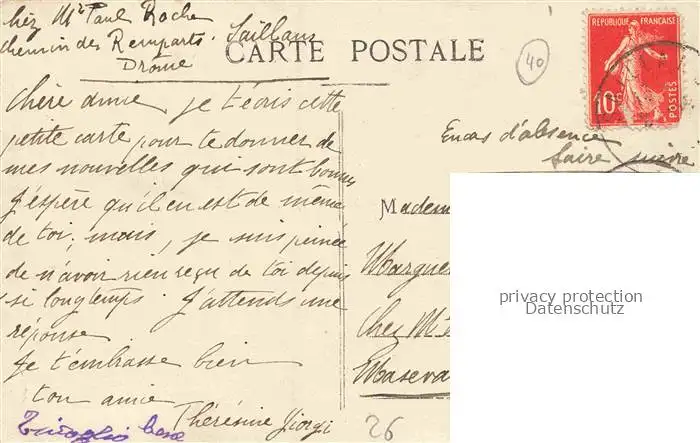 chez Mr Paul Roche
chemin des Remparts. Saillans
Drôme
CARTE POSTALE
40
REPUBLIQUE FRANÇAISE
10c
POSTES
Chère amie je t'écris cette
petite carte pour te donner de
mes nouvelles qui sont bonnes
J'espère qu'il en est de même
de toi, mais, je suis peinée
de n'avoir rien reçu de toi depuis
si longtemps. J'attends une
réponse
Je t'embrasse bien
ton amie
Thérésine Giorgi
En cas d'absence
faire suivre
Madem
Margue
Chez M
Maseva
privacy protection
Datenschutz
26